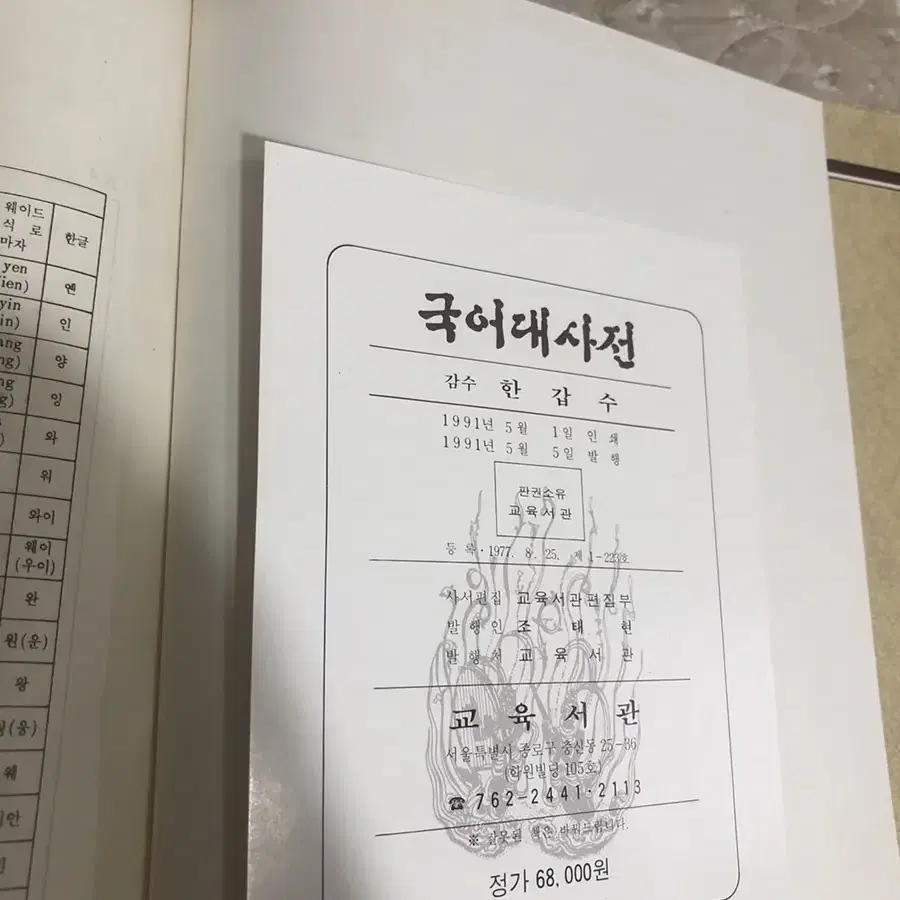 웨이드
식 로
마자
한글
yen
옌
yin
인
양
잉
와
워
와이
웨이
(우이)
완
원(운)
왕
(웅)
웨
국어대사전
감수 한 갑 수
1991년 5월 1일 인 쇄
1991년 5월 5일 발 행
판권소유
교 육 서 관
등 록·1977. 8. 25. 제 1-223호
사서편집 교육서관편집부
발 행 인 조 태 현
발 행 처 교 육 서 관
교 육 서 관
서울특별시 종로구 충신동 25-36
(학원빌딩 105호)
☎ 762-2441·2113
※ 잘못된 책은 바꿔드립니다.
정가 68,000원